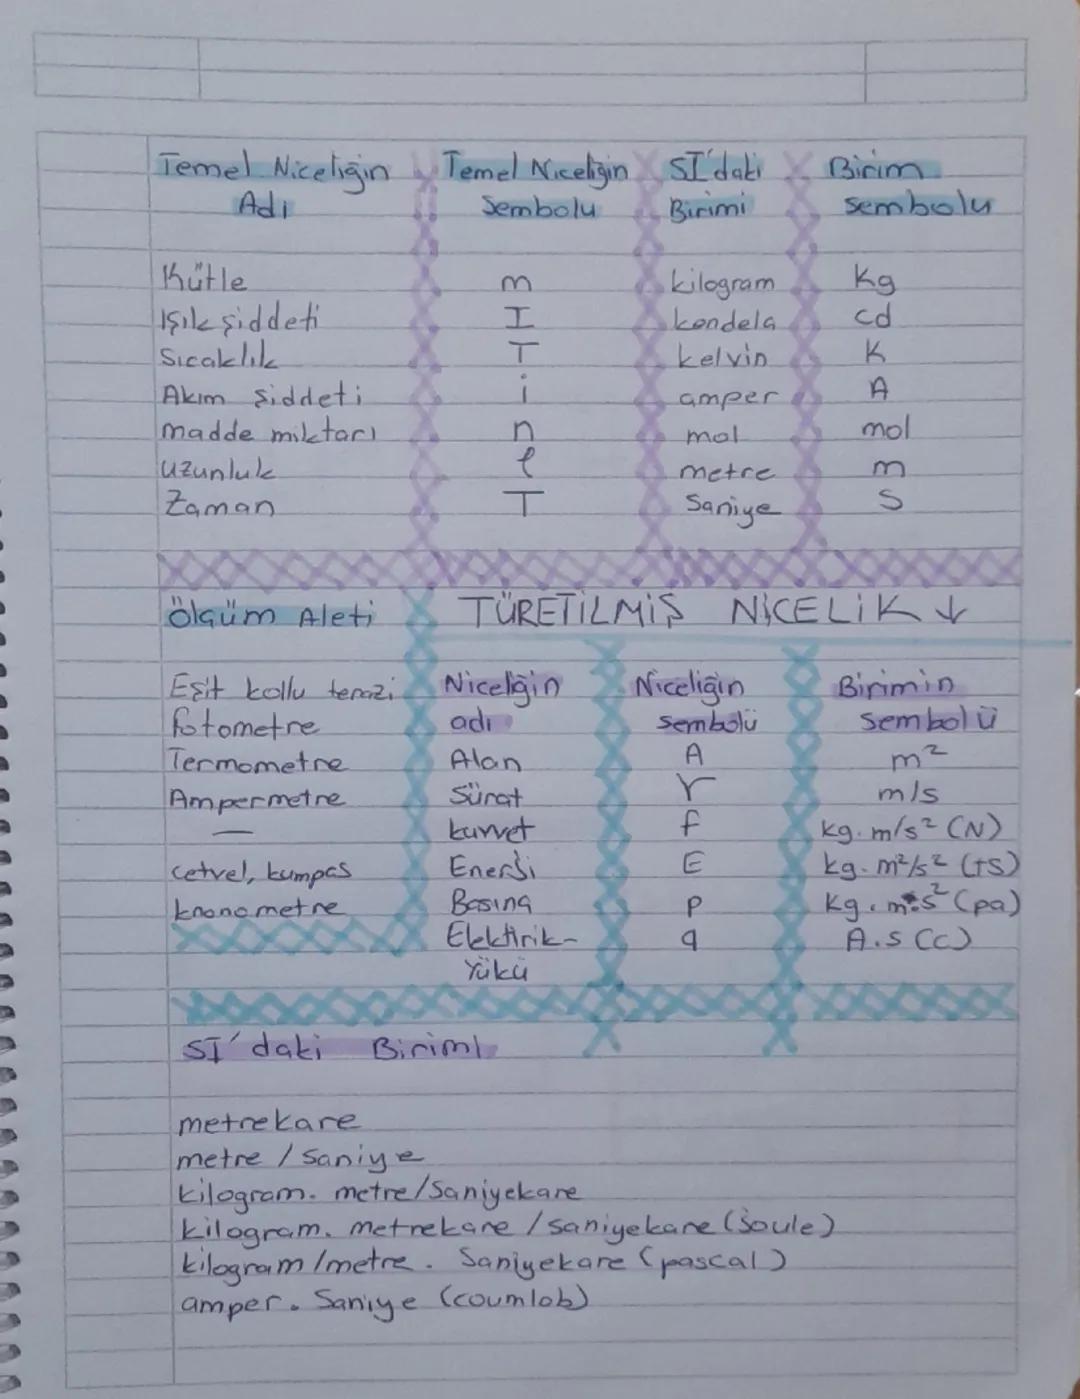 Temel Niceliğin Temel Niceliğin SI'daki Birim
Adı Sembolu Birimi sembolu
Kütle m kilogram Kg
Işık şiddeti I kandela cd
Sıcaklık T kelvin K
Akım şiddeti i amper A
madde miktarı n mol mol
uzunluk l metre m
Zaman T Saniye S
Ölçüm Aleti TÜRETİLMİŞ NİCELİK ↓
Eşit kollu terazi Niceliğin Niceliğin Birimin
fotometre adı sembölü Sembolü
Termometre Alan A m²
Ampermetre Sürat m/s
— kuvvet f kg. m/s² (N)
cetvel, kumpas Enerji E kg. m²/s²
kronometre Basınç P (pa)
Elektirik- q A.s (C)
Yükü
SI'daki Birimi
metrekare
metre / Saniye
kilogram. metre/Saniyekare
kilogram. metrekare /saniyekare (joule)
kilogram/metre. Saniyekare (pascal)
amper. Saniye (coumlob)